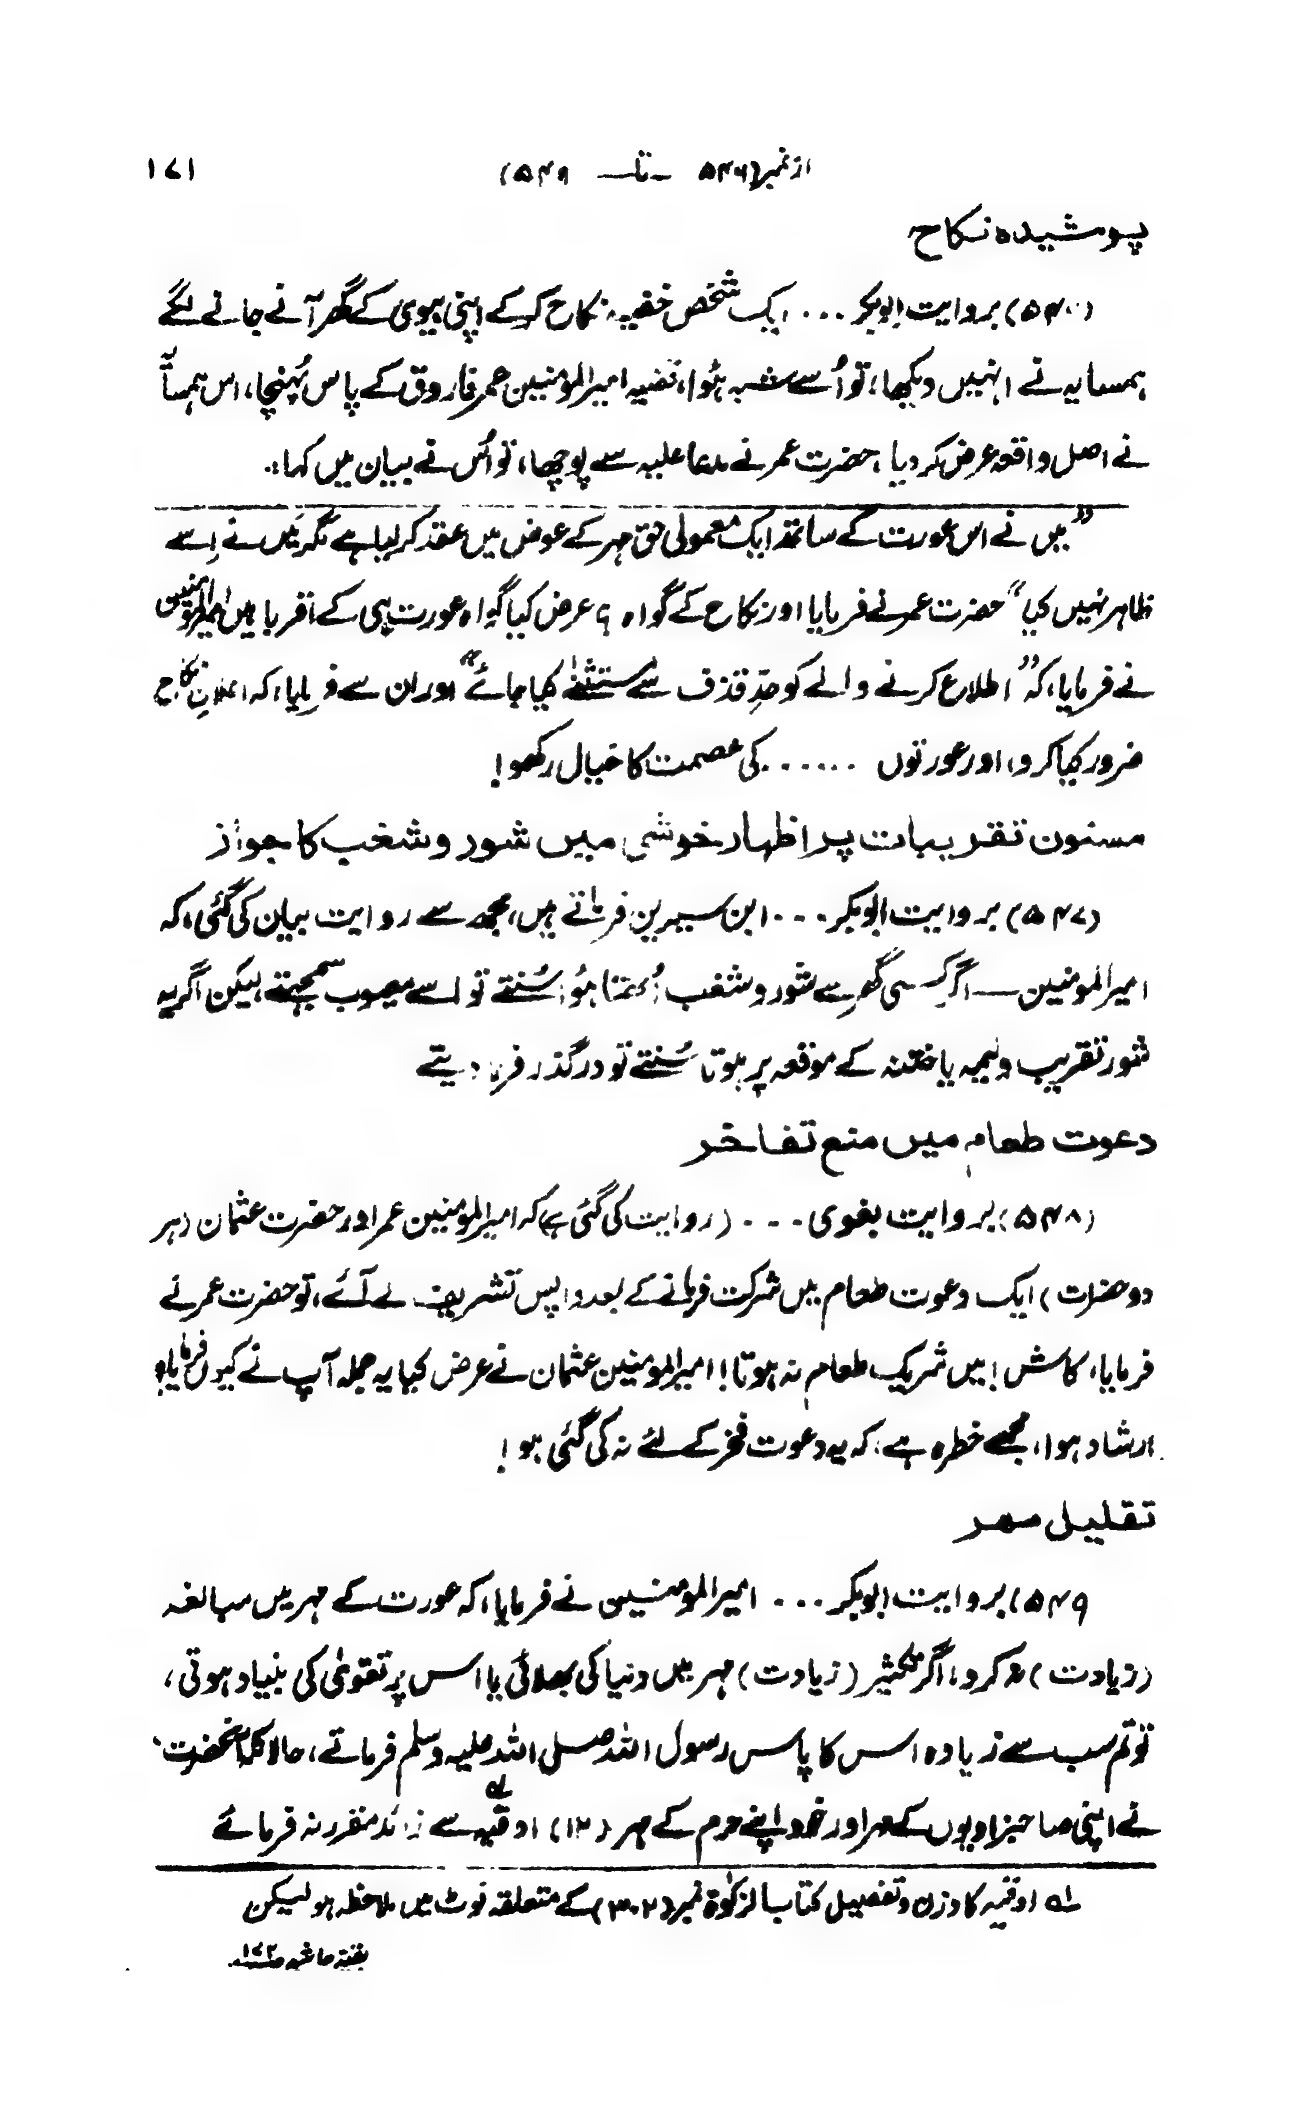 از نمبر (۵۴۶ — تا — ۵۴۹) ۱۷۱
پوشیدہ نکاح
(۵۴۰) بروایت ابوبکر ... ایک شخص خفیہ نکاح کرکے اپنی بیوی کے گھر آنے جانے لگے
ہمسایہ نے انہیں دیکھا، تو اُسے شبہ ہُوا، قضیہ امیرالمومنین عمر فاروق کے پاس پُہنچا، اس ہمسایہ
نے اصل واقعہ عرض کر دیا، حضرت عمر نے مدعا علیہ سے پوچھا، تو اُس نے بیان میں کہا:.
"میں نے اس عورت کے ساتھ ایک معمولی حق مہر کے عوض میں عقد کر لیا ہے مگر مَیں نے اِسے
ظاہر نہیں کیا" حضرت عمر نے فرمایا اور نکاح کے گواہ ؟ عرض کیا گواہ عورت ہی کے اقربا ہیں امیرالمومنین
نے فرمایا، کہ "اطلاع کرنے والے کو حدِّ قذف سے مستثنٰے کیا جائے" اور ان سے فرمایا، کہ اعلانِ نکاح
ضرور کیا کرو، اور عورتوں ...... کی عصمت کا خیال رکھو!
مسنون تقریبات پر اظہار خوشی میں شور و شغب کا جواز
(۵۴۷) بروایت ابوبکر ... ابن سیرین فرماتے ہیں، مجھ سے روایت بیان کی گئی، کہ
امیرالمومنین — اگر کسی گھر سے شور و شغب اُٹھتا ہُوا سُنتے تو اسے معیوب سمجھتے لیکن اگر یہ
شور تقریب ولیمہ یا ختنہ کے موقعہ پر ہوتا سُنتے تو درگذر فرما دیتے
دعوت طعام میں منع تفاخر
(۵۴۸) بروایت بغوی ... (روایت کی گئی ہے) کہ امیرالمومنین عمر اور حضرت عثمان (ہر
دو حضرات) ایک دعوت طعام میں شرکت فرمانے کے بعد واپس تشریف لے آئے، تو حضرت عمر نے
فرمایا، کاش! میں شریک طعام نہ ہوتا! امیرالمومنین عثمان نے عرض کیا یہ جملہ آپ نے کیوں فرمایا؟
ارشاد ہوا، مجھے خطرہ ہے، کہ یہ دعوت فخر کے لئے نہ کی گئی ہو!
تقلیل مہر
۵۴۹) بروایت ابوبکر ... امیرالمومنین نے فرمایا، کہ عورت کے مہر میں مبالغہ
(زیادت) نہ کرو، اگر تکثیر (زیادت) مہر میں دنیا کی بھلائی یا اس پر تقوٰی کی بنیاد ہوتی،
تو تم سب سے زیادہ اس کا پاس رسول اللہ صلی اللہ علیہ وسلم فرماتے، حالانکہ آنحضرت
نے اپنی صاحبزادیوں کے مہر اور خود اپنے حرم کے مہر (۱۲) اوقیہ لہ سے زائد مقرر نہ فرمائے
لہ اوقیہ کا وزن و تفصیل کتاب الزکوٰۃ نمبر (۳۰۲) کے متعلقہ نوٹ میں ملاحظہ ہو لیکن
بقیہ حاشیہ ص۱۷۲